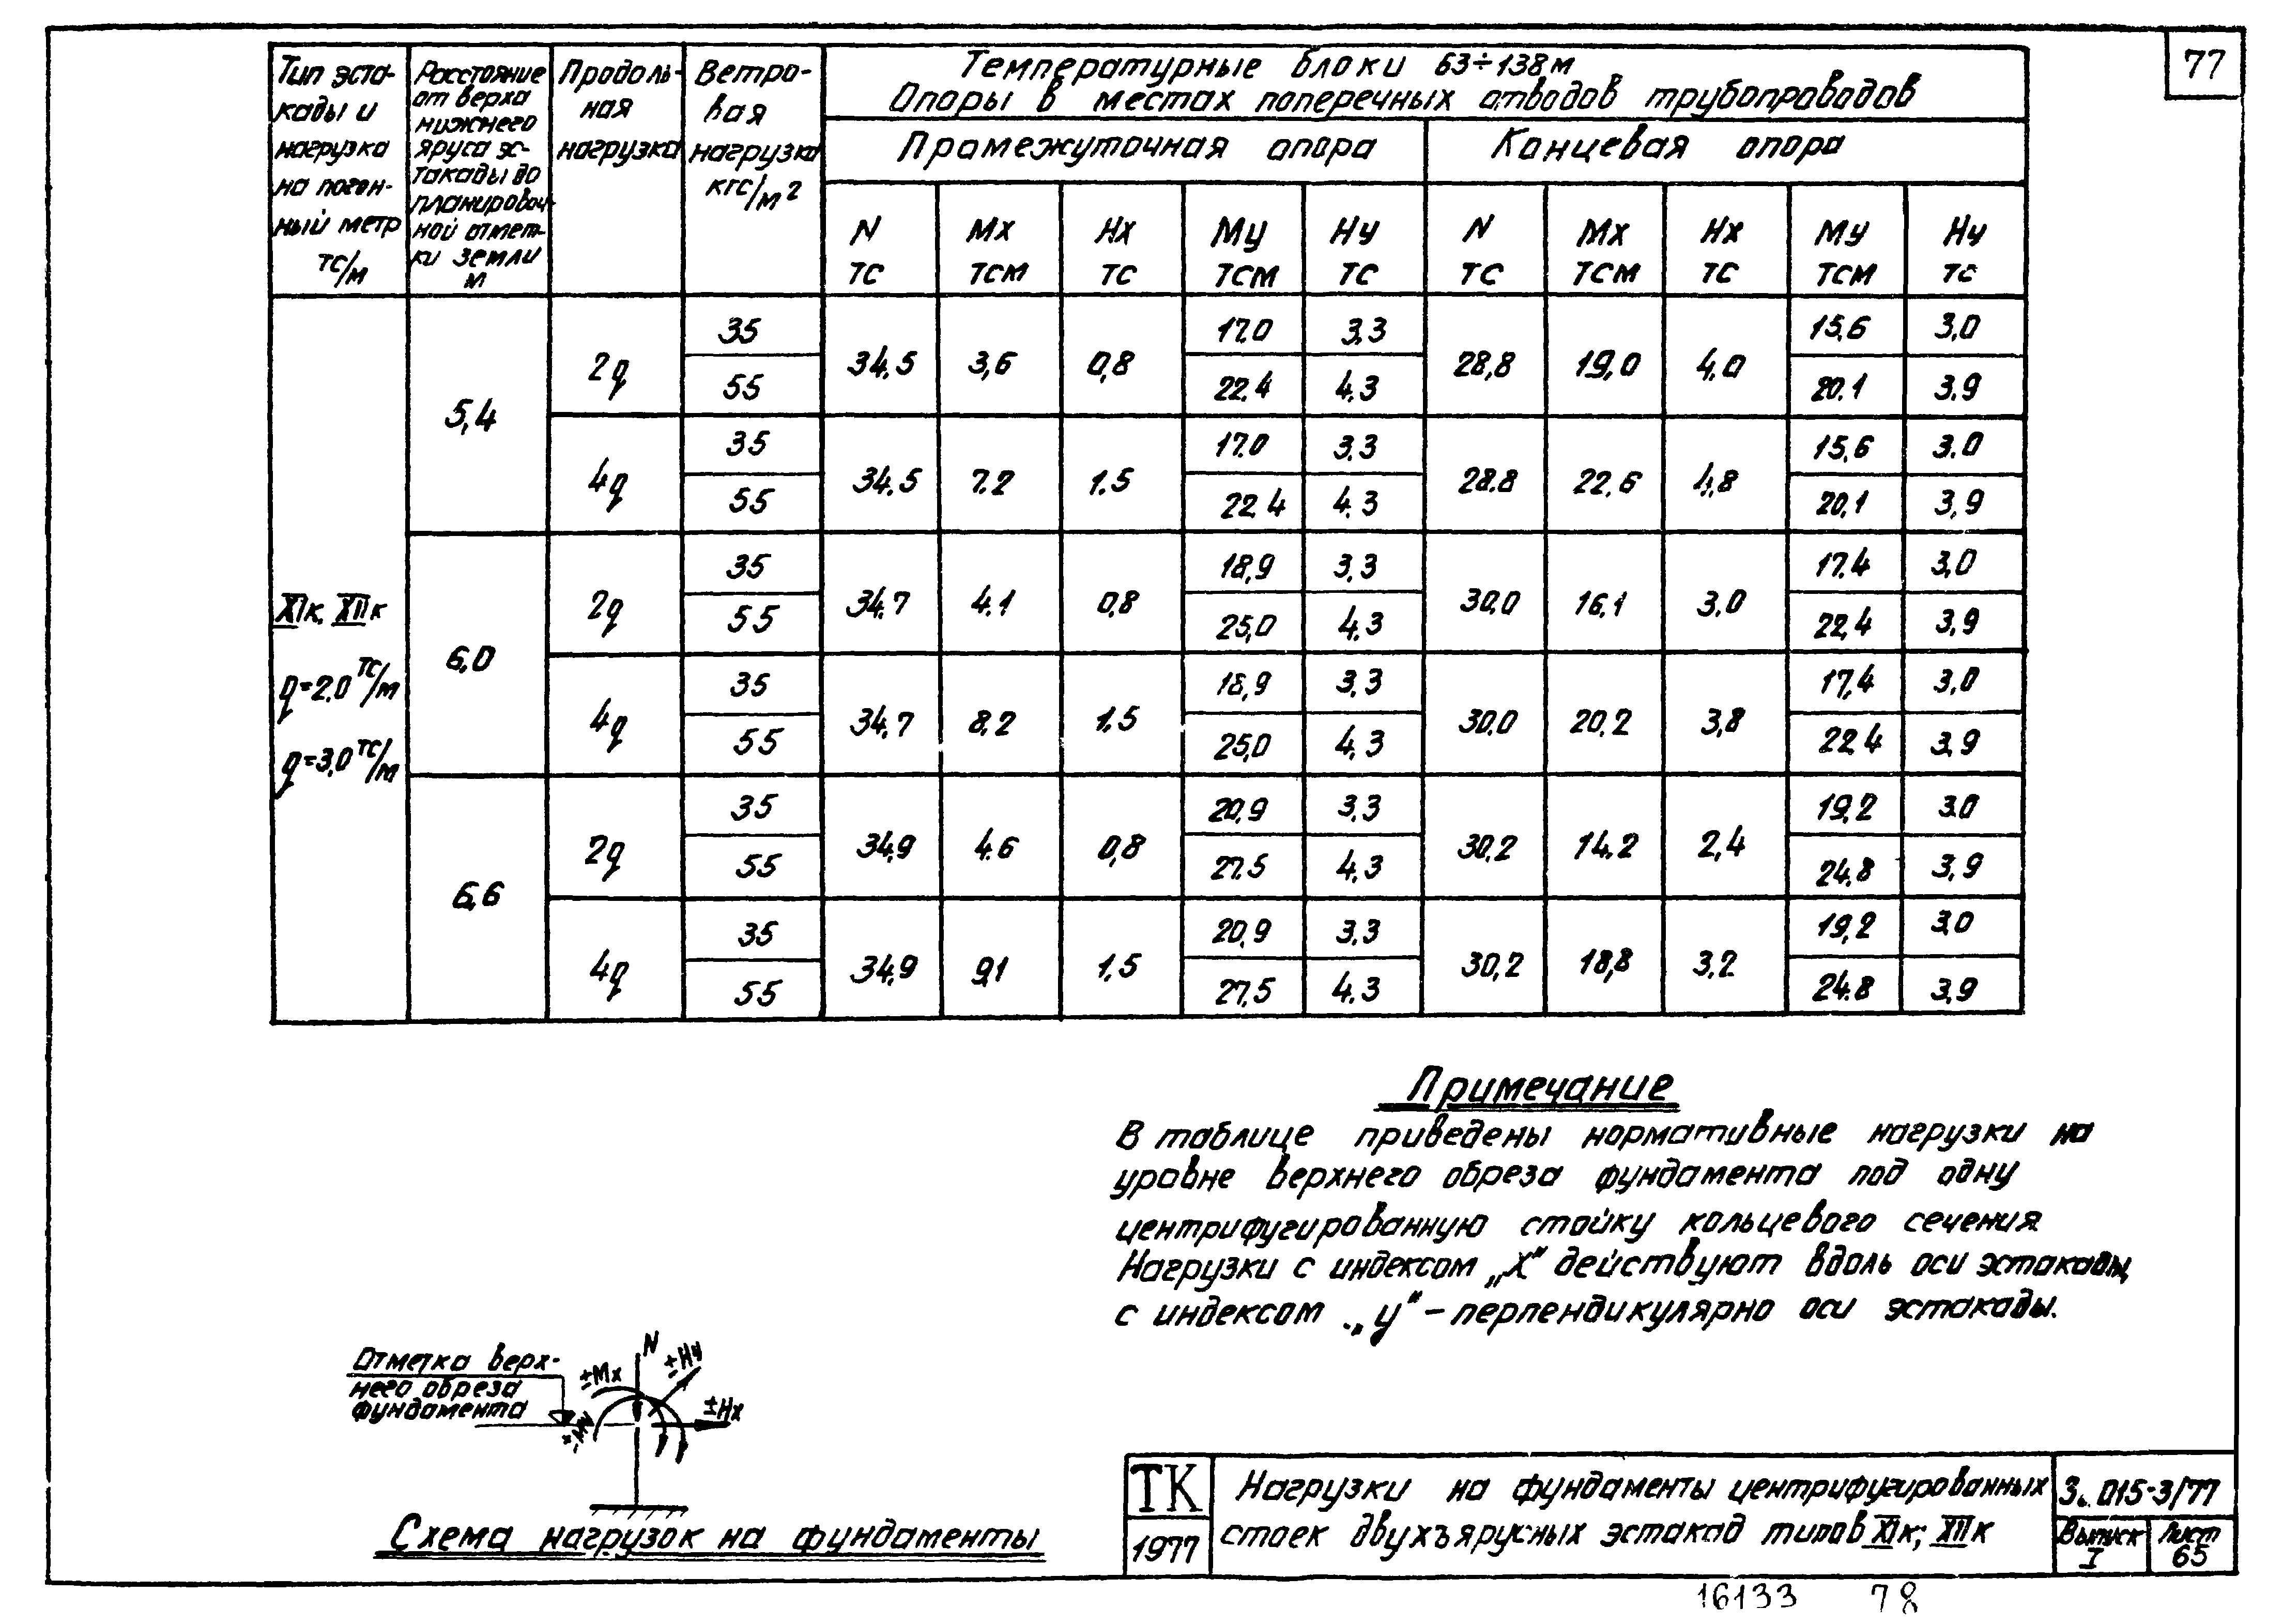 77
Тип эста-
кады и
нагрузка
на погон-
ный метр
тс/м
Расстояние
от верха
нижнего
яруса эс-
такады до
планировоч-
ной отмет-
ки земли
м
Продоль-
ная
нагрузка
Ветро-
вая
нагрузка
кгс/м²
Температурные блоки 63÷138м
Опоры в местах поперечных отводов трубопроводов
Промежуточная опора Концевая опора
N Mx Hx My Hy N Mx Hx My Hy
тс тсм тс тсм тс тс тсм тс тсм тс
XIк, XIIк
q=2.0 тс/м
q=3,0 тс/м
5,4
2q 35 34.5 3,6 0,8 17.0 3.3 28,8 19,0 4.0 15,6 3,0
55 22.4 4.3 20.1 3.9
4q 35 34.5 7.2 1.5 17.0 3.3 28.8 22.6 4,8 15,6 3.0
55 22.4 4.3 20,1 3,9
6,0
2q 35 34.7 4.1 0,8 18,9 3.3 30.0 16.1 3,0 17.4 3,0
55 25,0 4.3 22,4 3,9
4q 35 34.7 8,2 1.5 18,9 3.3 30.0 20.2 3,8 17,4 3,0
55 25,0 4.3 22.4 3.9
6,6
2q 35 34.9 4.6 0,8 20,9 3,3 30.2 14.2 2,4 19,2 3.0
55 27.5 4.3 24.8 3,9
4q 35 34.9 9,1 1,5 20,9 3,3 30,2 18,8 3.2 19,2 3,0
55 27,5 4.3 24.8 3,9
Примечание
В таблице приведены нормативные нагрузки на
уровне верхнего обреза фундамента под одну
центрифугированную стойку кольцевого сечения
Нагрузки с индексом „X" действуют вдоль оси эстакады,
с индексом „У" – перпендикулярно оси эстакады.
Отметка верх-
него обреза
фундамента
±Mx
N
±Hy
±Hx
±My
Схема нагрузок на фундаменты
ТК
1977
Нагрузки на фундаменты центрифугированных
стоек двухъярусных эстакад типов XIк; XIIк
3.015-3/77
Выпуск
I
Лист
65
16133 78